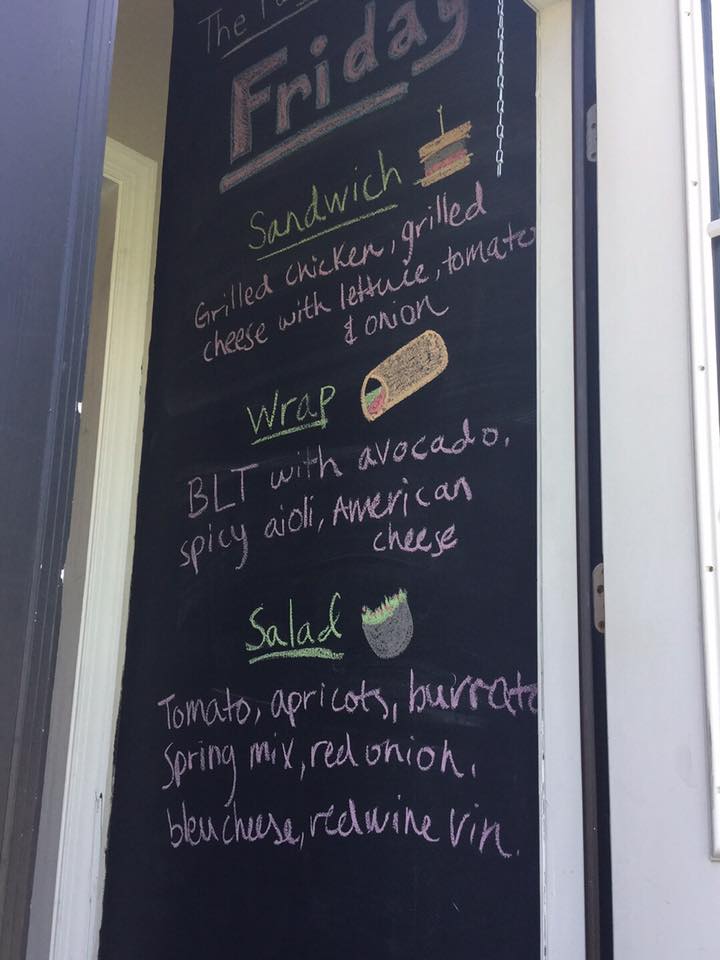 The
Friday
Sandwich
Grilled chicken, grilled
cheese with lettuce, tomato
& onion
Wrap
BLT with avocado,
spicy aioli, American
cheese
Salad
Tomato, apricots, burrata
Spring mix, red onion,
bleu cheese, red wine vin.